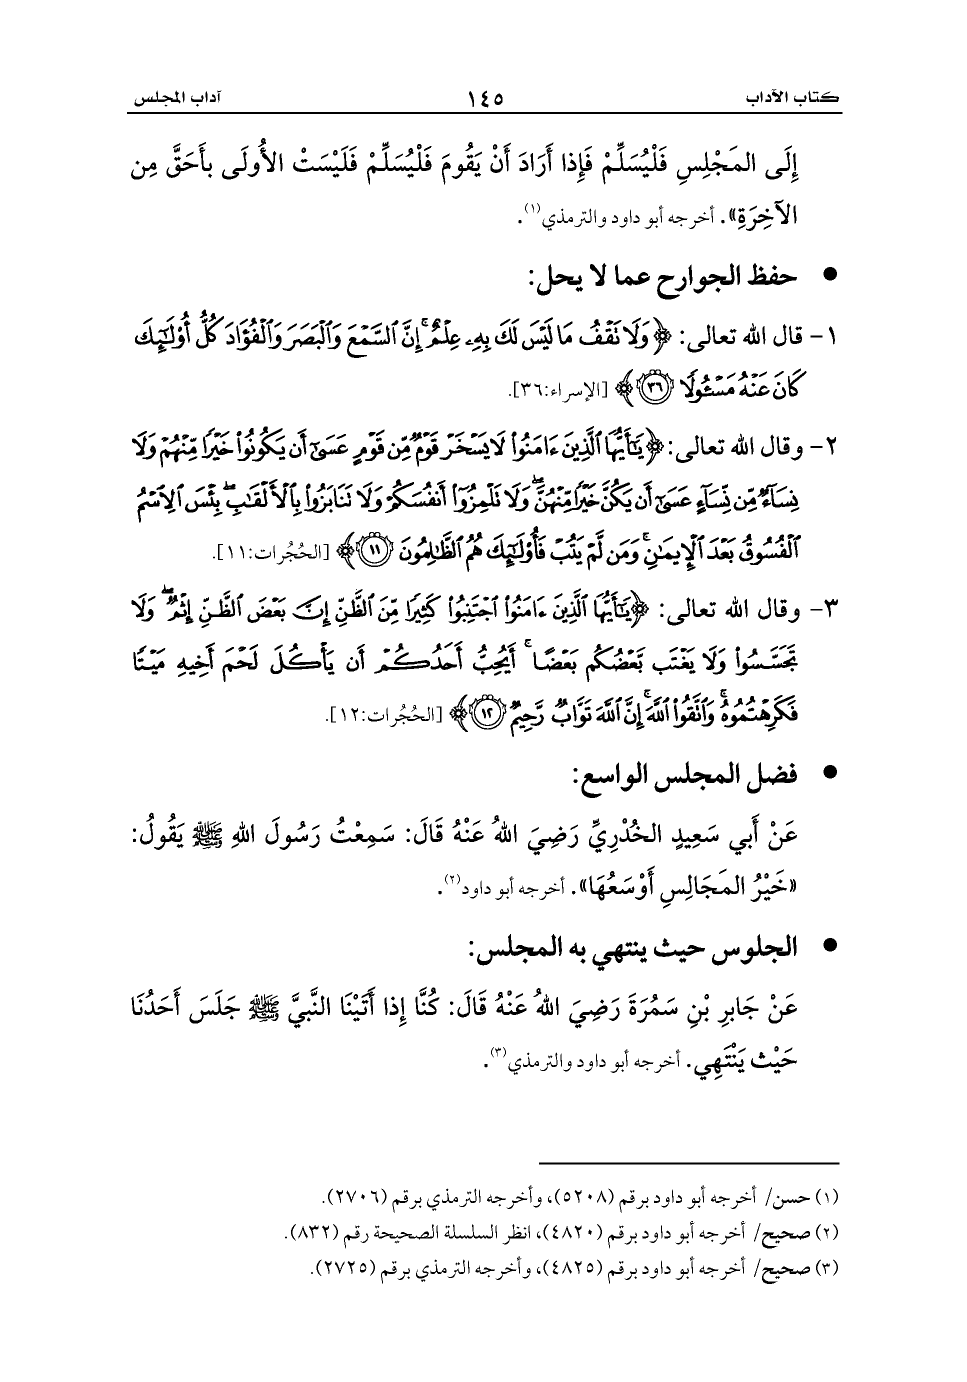 كتاب الآداب ١٤٥ آداب المجلس
إِلَى المَجْلِسِ فَلْيُسَلِّمْ فَإِذا أَرَادَ أَنْ يَقُومَ فَلْيُسَلِّمْ فَلَيْسَتْ الأُولَى بأَحَقَّ مِن
الآخِرَةِ». أخرجه أبو داود والترمذي(١).
• حفظ الجوارح عما لا يحل:
١- قال الله تعالى: ﴿وَلَا تَقْفُ مَا لَيْسَ لَكَ بِهِۦ عِلْمٌ ۚ إِنَّ ٱلسَّمْعَ وَٱلْبَصَرَ وَٱلْفُؤَادَ كُلُّ أُوْلَٰٓئِكَ
كَانَ عَنْهُ مَسْـُٔولًا ٣٦﴾ [الإسراء:٣٦].
٢- وقال الله تعالى: ﴿يَٰٓأَيُّهَا ٱلَّذِينَ ءَامَنُوا۟ لَا يَسْخَرْ قَوْمٌ مِّن قَوْمٍ عَسَىٰٓ أَن يَكُونُوا۟ خَيْرًا مِّنْهُمْ وَلَا
نِسَآءٌ مِّن نِّسَآءٍ عَسَىٰٓ أَن يَكُنَّ خَيْرًا مِّنْهُنَّ ۖ وَلَا تَلْمِزُوٓا۟ أَنفُسَكُمْ وَلَا تَنَابَزُوا۟ بِٱلْأَلْقَٰبِ ۖ بِئْسَ ٱلِٱسْمُ
ٱلْفُسُوقُ بَعْدَ ٱلْإِيمَٰنِ ۚ وَمَن لَّمْ يَتُبْ فَأُو۟لَٰٓئِكَ هُمُ ٱلظَّٰلِمُونَ ١١﴾ [الحُجُرات:١١].
٣- وقال الله تعالى: ﴿يَٰٓأَيُّهَا ٱلَّذِينَ ءَامَنُوا۟ ٱجْتَنِبُوا۟ كَثِيرًا مِّنَ ٱلظَّنِّ إِنَّ بَعْضَ ٱلظَّنِّ إِثْمٌ ۖ وَلَا
تَجَسَّسُوا۟ وَلَا يَغْتَب بَّعْضُكُم بَعْضًا ۚ أَيُحِبُّ أَحَدُكُمْ أَن يَأْكُلَ لَحْمَ أَخِيهِ مَيْتًا
فَكَرِهْتُمُوهُ ۚ وَٱتَّقُوا۟ ٱللَّهَ ۚ إِنَّ ٱللَّهَ تَوَّابٌ رَّحِيمٌ ١٢﴾ [الحُجُرات:١٢].
• فضل المجلس الواسع:
عَنْ أَبي سَعِيدٍ الخُدْرِيِّ رَضِيَ اللهُ عَنْهُ قَالَ: سَمِعْتُ رَسُولَ اللهِ ﷺ يَقُولُ:
«خَيْرُ المَجَالِسِ أَوْسَعُهَا». أخرجه أبو داود(٢).
• الجلوس حيث ينتهي به المجلس:
عَنْ جَابرِ بْنِ سَمُرَةَ رَضِيَ اللهُ عَنْهُ قَالَ: كُنَّا إِذا أَتَيْنَا النَّبيَّ ﷺ جَلَسَ أَحَدُنَا
حَيْث يَنْتَهِي. أخرجه أبو داود والترمذي(٣).
(١) حسن/ أخرجه أبو داود برقم (٥٢٠٨)، وأخرجه الترمذي برقم (٢٧٠٦).
(٢) صحيح/ أخرجه أبو داود برقم (٤٨٢٠)، انظر السلسلة الصحيحة رقم (٨٣٢).
(٣) صحيح/ أخرجه أبو داود برقم (٤٨٢٥)، وأخرجه الترمذي برقم (٢٧٢٥).